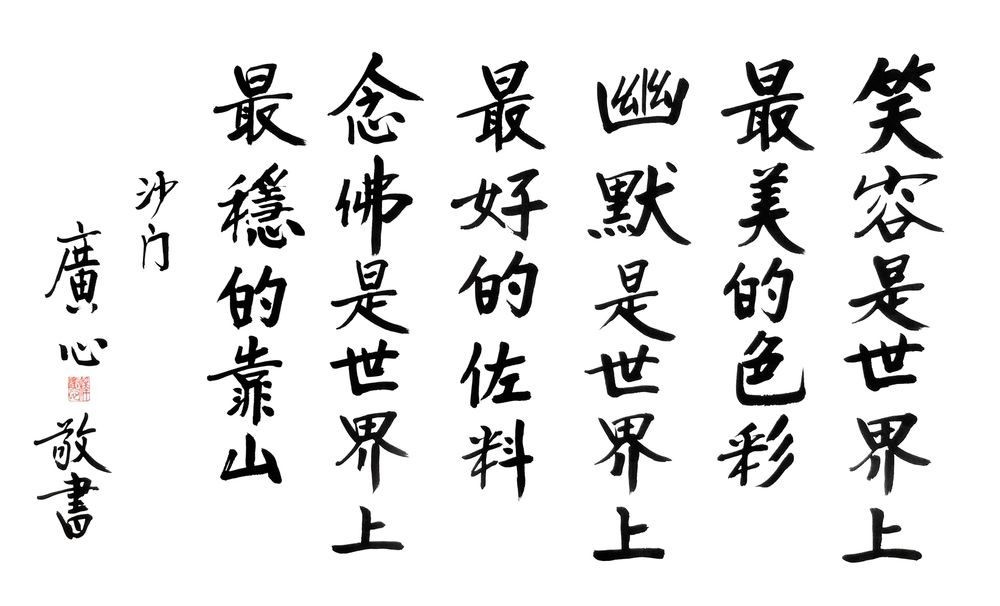 笑容是世界上
最美的色彩
幽默是世界上
最好的佐料
念佛是世界上
最穩的靠山
沙门
廣心
敬書